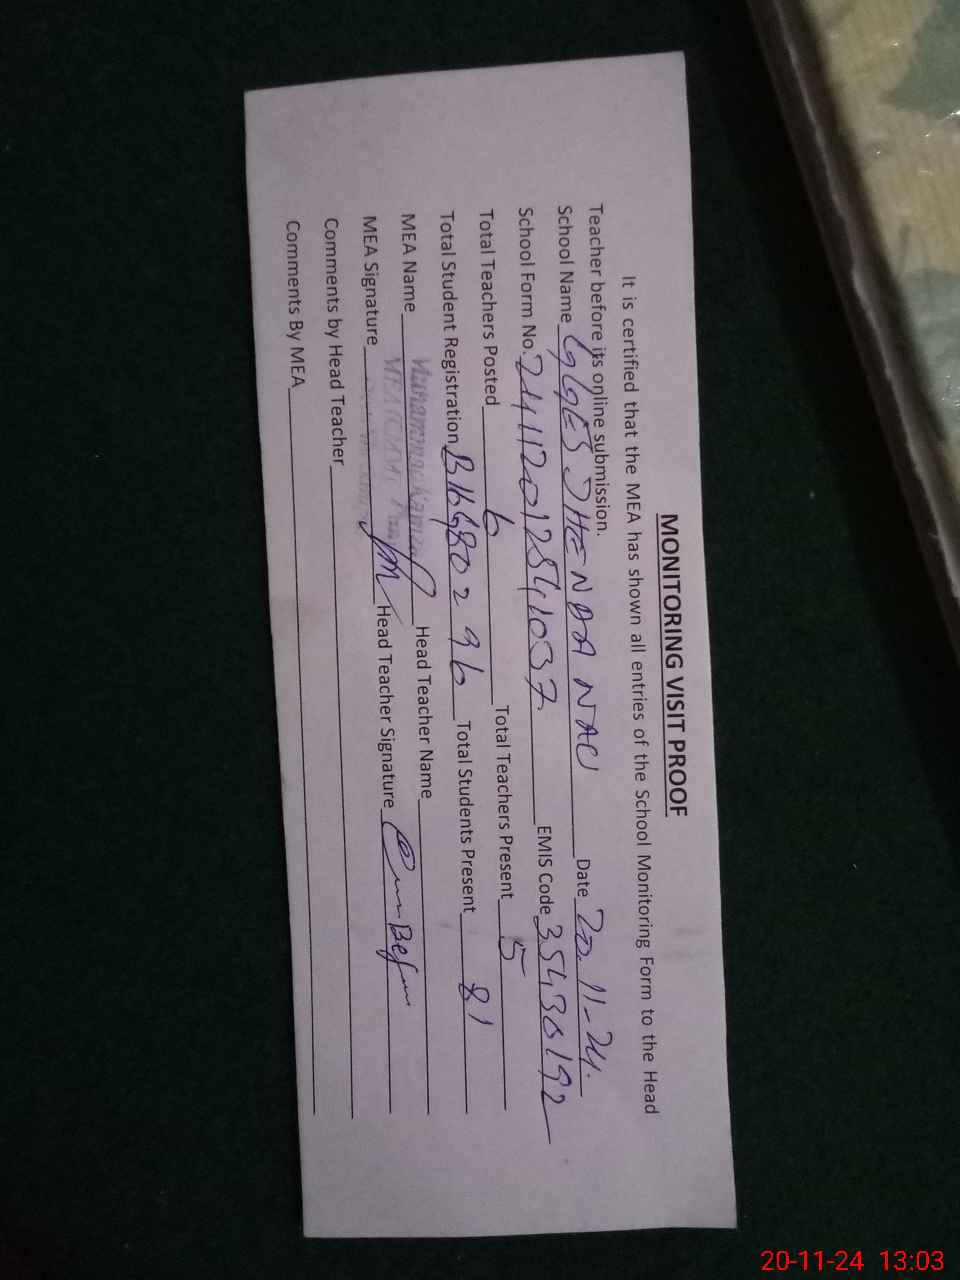 MONITORING VISIT PROOF
It is certified that the MEA has shown all entries of the School Monitoring Form to the Head
Teacher before its online submission.
School Name GGES JHENDA NAU Date 20.11-24.
School Form No. 24112012541037 EMIS Code 35430192
Total Teachers Posted 6 Total Teachers Present 5
Total Student Registration 96 Total Students Present 81
MEA Name Muhammad Head Teacher Name
MEA Signature Head Teacher Signature
Comments by Head Teacher
Comments By MEA
20-11-24 13:03